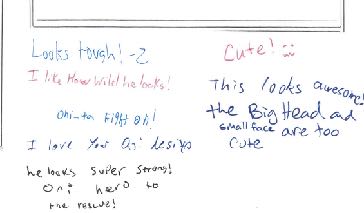 Looks tough! -Z
I like How wild he looks!
Oni-to Fight On!
I love your Oni designs
he looks super strong!
Oni hero to
the rescue!
Cute!
This looks awesome!
the Big Head and
small face are too
cute